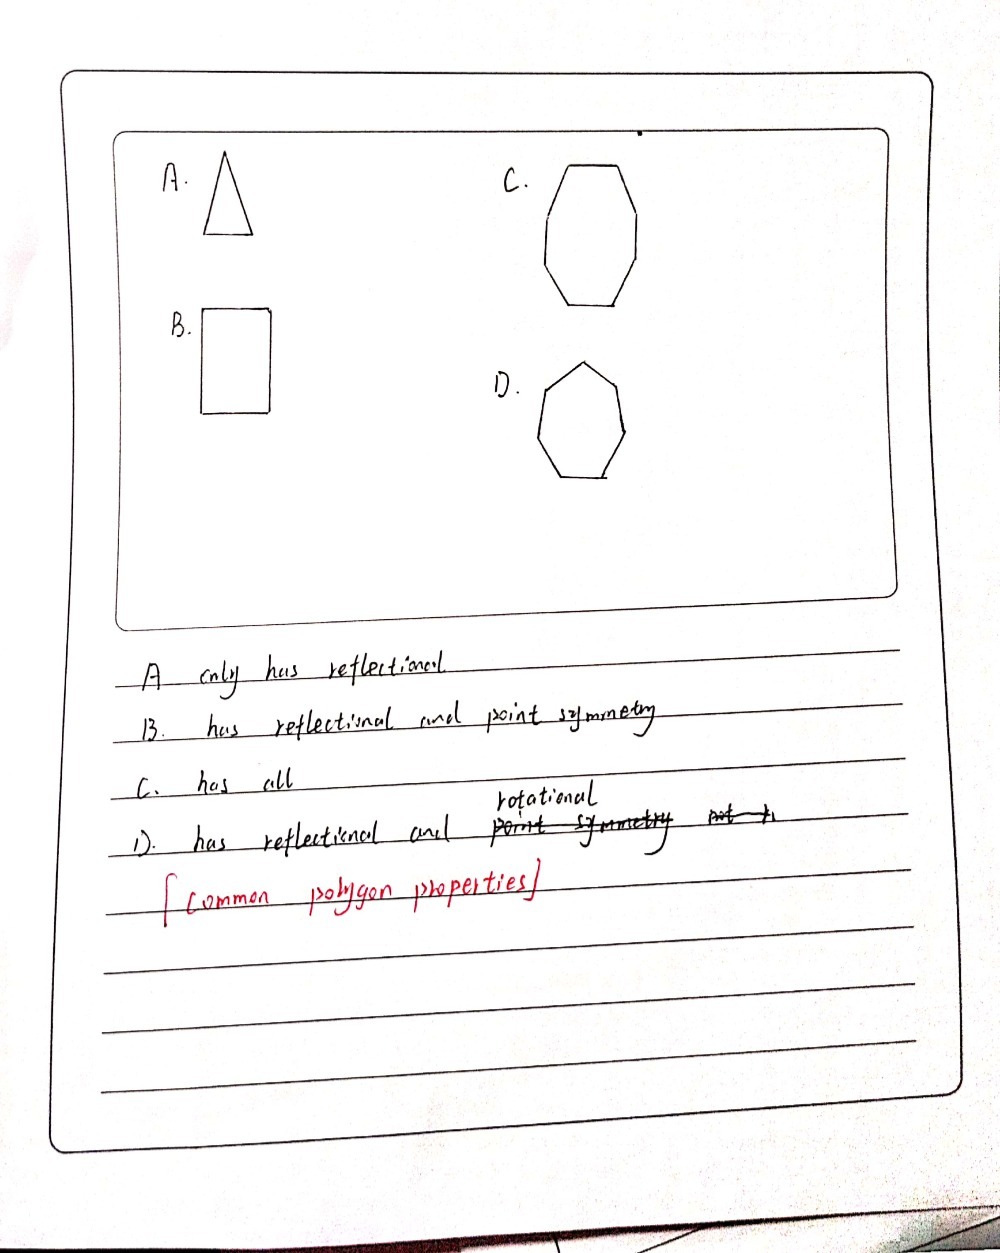 A.
C.
B.
D.
A only has reflectional
B. has reflectional and point symmetry
C. has all
rotational
D. has reflectional and point symmetry not
[Common polygon properties]